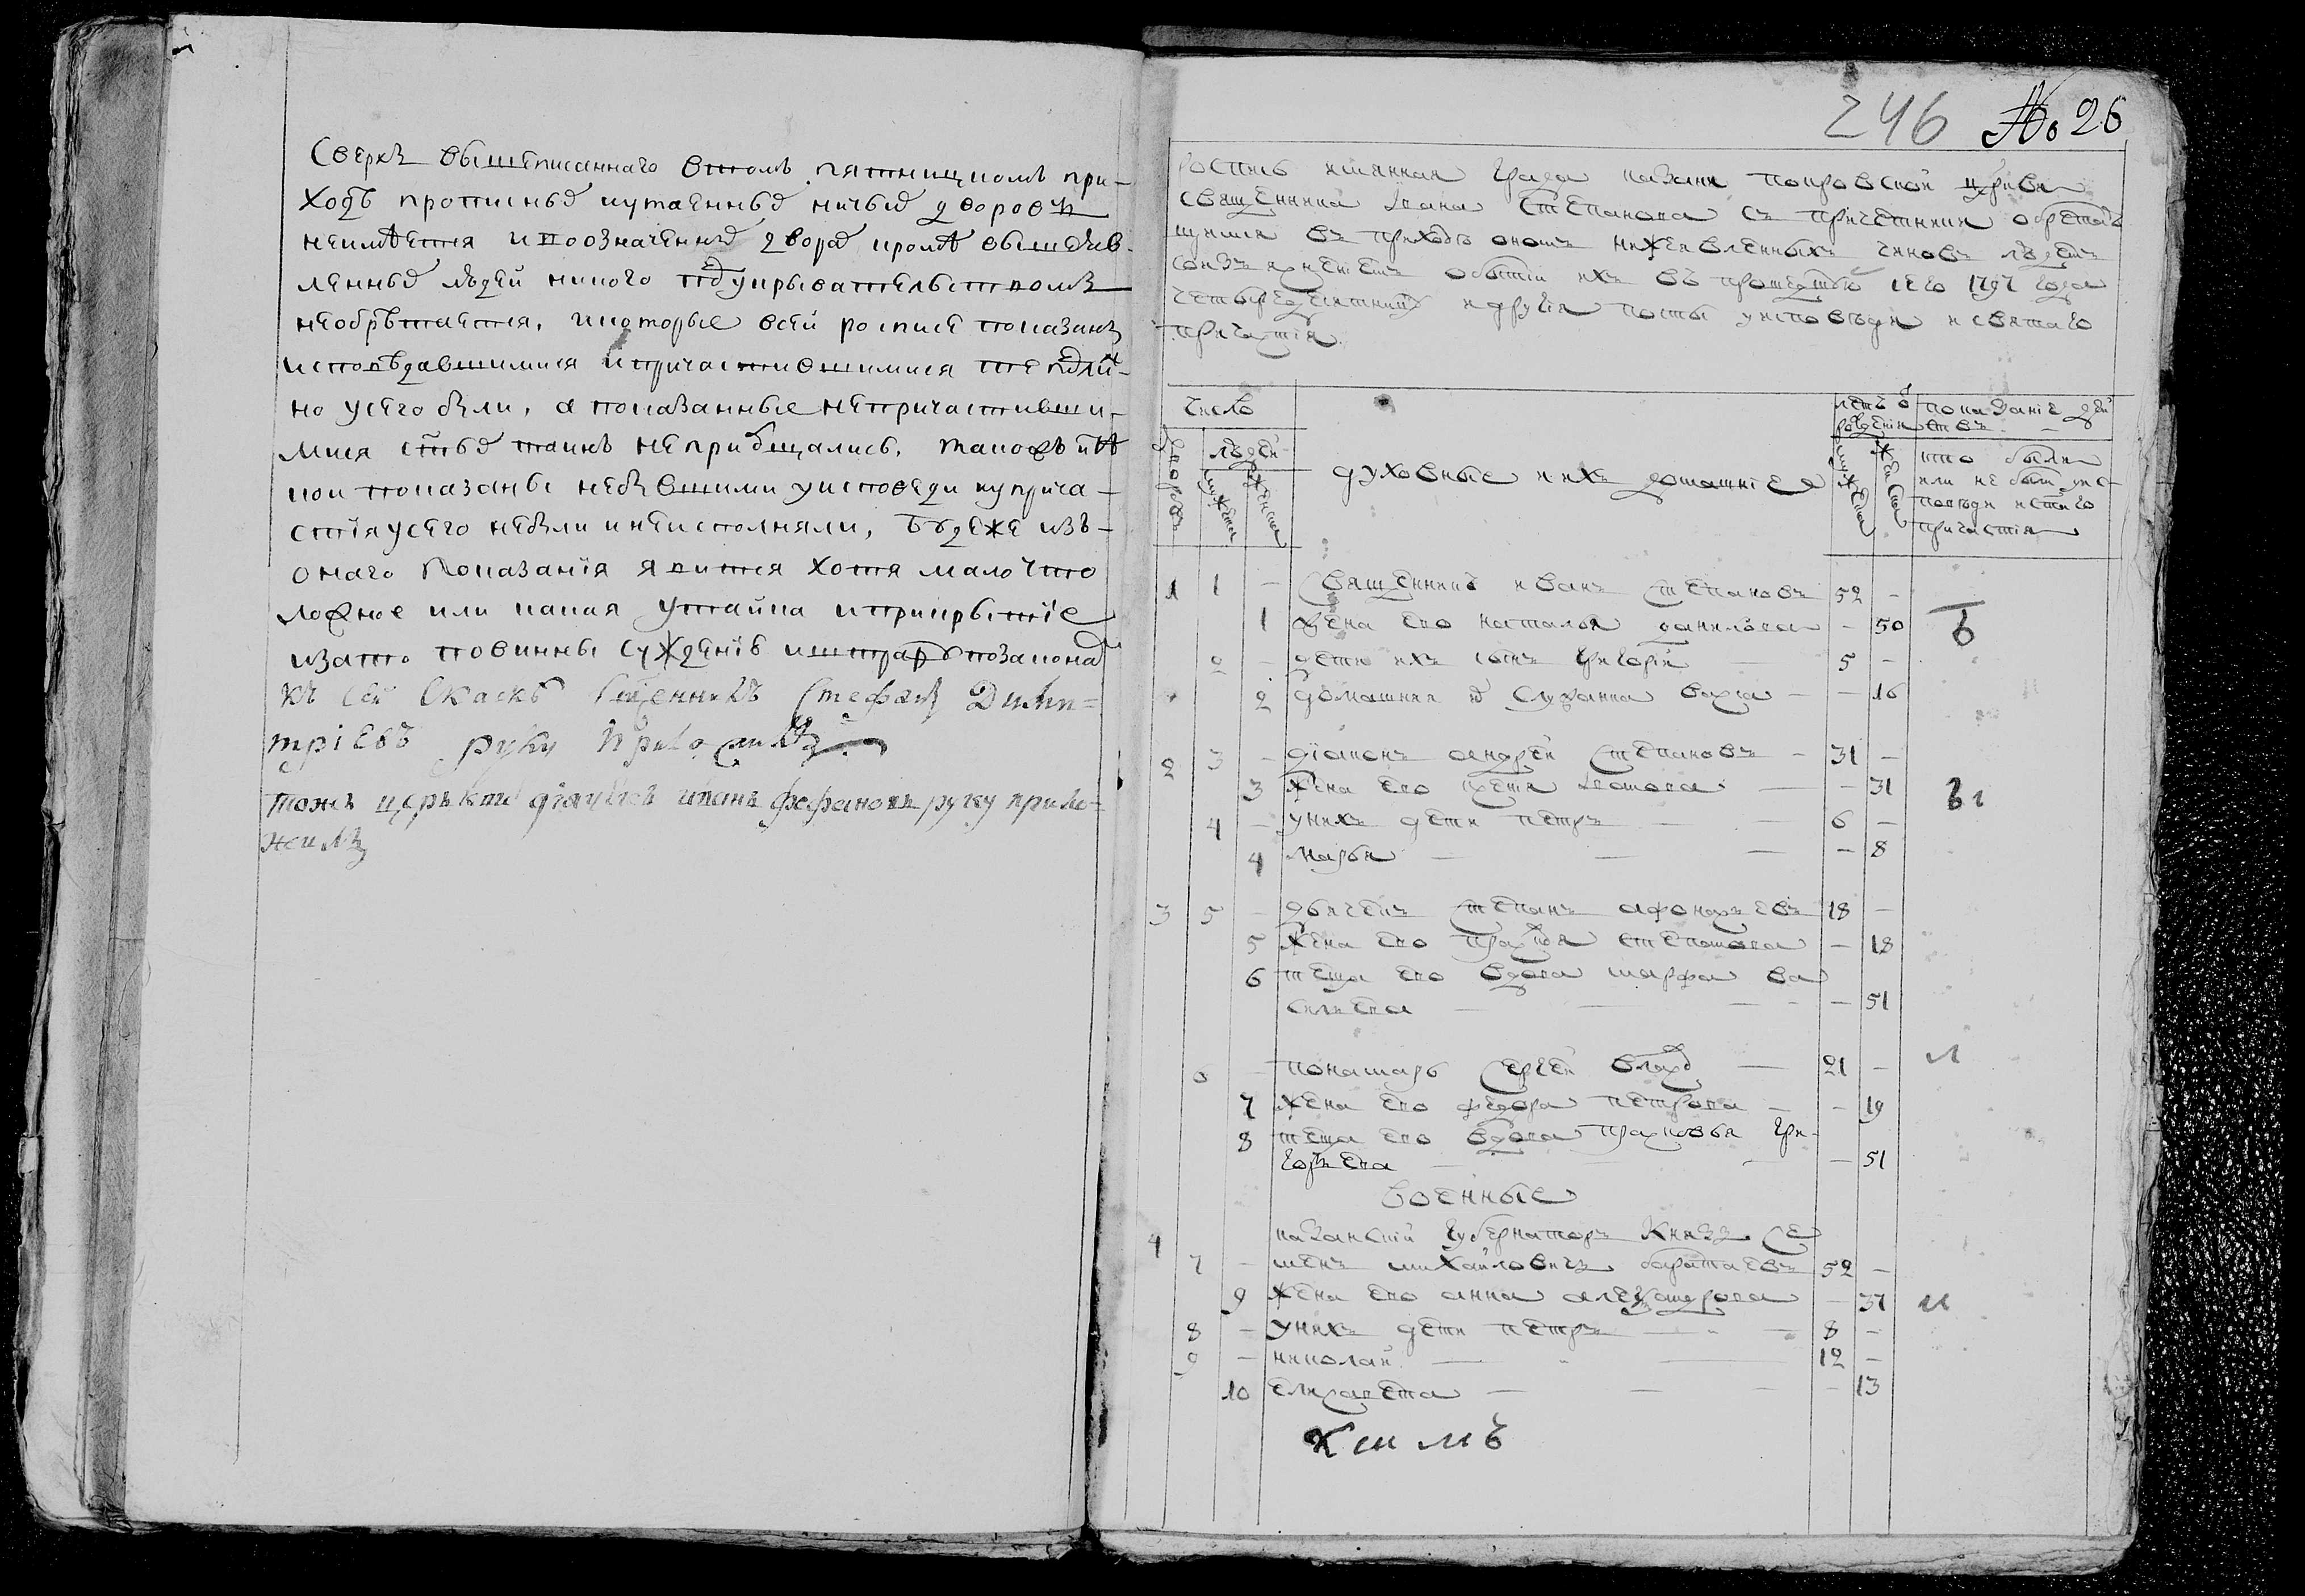 Сверхъ вышеписаннаго втомъ пятницкомъ при-
ходѣ прописныхъ иутаенныхъ ничьихъ дворовъ
неимѣется и поозначеннымъ дворамъ кромѣ вышеявл-
ленныхъ людей никого подукрывательствомъ
необрѣтается, икоторые всей росписе показаны
исповѣдавшимися ипричастившимися те подлин-
но усего были, а показанные непричастивши-
мися стыхъ таинъ неприобщались, такожъ итѣ
кои показаны небывшими уисповеди куприча-
стїя усего небыли инеисполняли, Будеже изъ-
онаго Показанїя явится хотя мало что
ложное или какая утайка иприкрытїе
изато повинны сужденїю иштрафу позаконамъ
Къ сей Скаскѣ Сщенникъ Стефанъ Дими=
трїевъ руку приложилъ
тожъ церькви дїачекъ иванъ фефановъ руку прило=
жилъ
246 № 26
роспись имянная града казани покровской церкви
священника Ивана Степанова съ причетники обретаю
щимся въ приходѣ ономъ нижеявленныхъ чиновъ людемъ
сизъяснениемъ обытїи ихъ въ прошедшую сего 1797 года
четыредесятницу идругїя посты уисповѣди исвятаго
причастїя
Число
дворовъ
людей
мужска
женска
духовные иихъ домашнїея
летъ о рожденїя
мужска
женска
показанїе дей
ствъ
кто былъ
или не былъ уис
поведи истаго
причастїя
1 1 — Священникъ иванъ Степановъ 52 —
1 Жена ево наталья данилова — 50
2 — дети ихъ сынъ григорїй — 5 —
2 домашняя — — 16
2 3 — дїаконъ андрей Степановъ — 31 —
3 жена ево — — 31
4 — унихъ дети петръ — — 6 —
4 марья — — — — 8
3 5 — дьячекъ Степанъ афонасьевъ 18 —
5 жена ево Степанова — 18
6 теща ево вдова марфа ва
сильева — — — — 51
6 — понамарь Сергей — 21 —
7 жена ево федора петрова — — 19
8 теща ево вдова прасковья гри-
горьева — — — 51
военные
4 казанскїй губернаторъ Князь Се
7 — менъ михайловичъ баратаевъ 52 —
9 жена ево анна александрова — 37
8 — унихъ дети петръ — — 8 —
9 — николай — — 12 —
10 елизавета — — — — 13